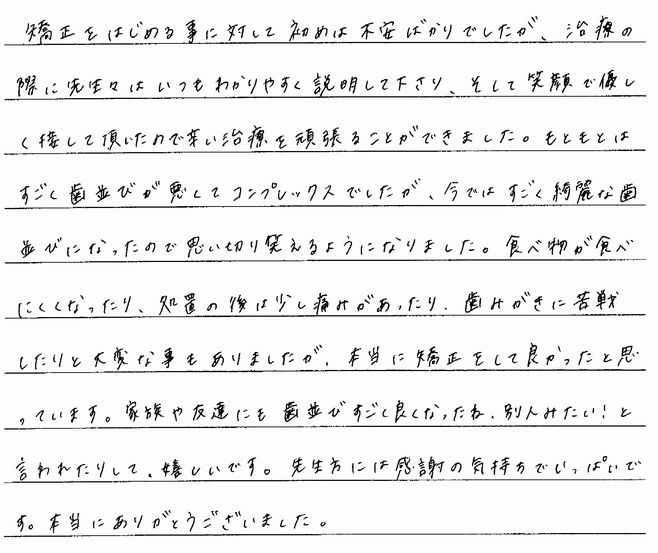 矯正をはじめる事に対して初めは不安ばかりでしたが、治療の
際に先生々はいつもわかりやすく説明して下さり、そして笑顔で優し
く接して頂いたので辛い治療を頑張ることができました。もともとは
すごく歯並びが悪くてコンプレックスでしたが、今ではすごく綺麗な歯
並びになったので思い切り笑えるようになりました。食べ物が食べ
にくくなったり、処置の後は少し痛みがあったり、歯みがきに苦戦
したりと大変な事もありましたが、本当に矯正をして良かったと思
っています。家族や友達にも歯並びすごく良くなったね、別人みたい！と
言われたりして、嬉しいです。先生方には感謝の気持ちでいっぱいで
す。本当にありがとうございました。